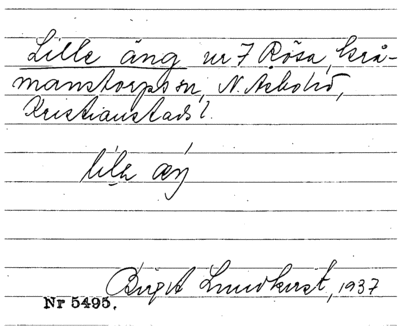 Lille äng nr 7 Rösa, Grå-
manstorps sn, N. Åsbo hd,
Kristianstads l.
lila æŋ
Birgit Lundkvist, 1937
Nr 5495.